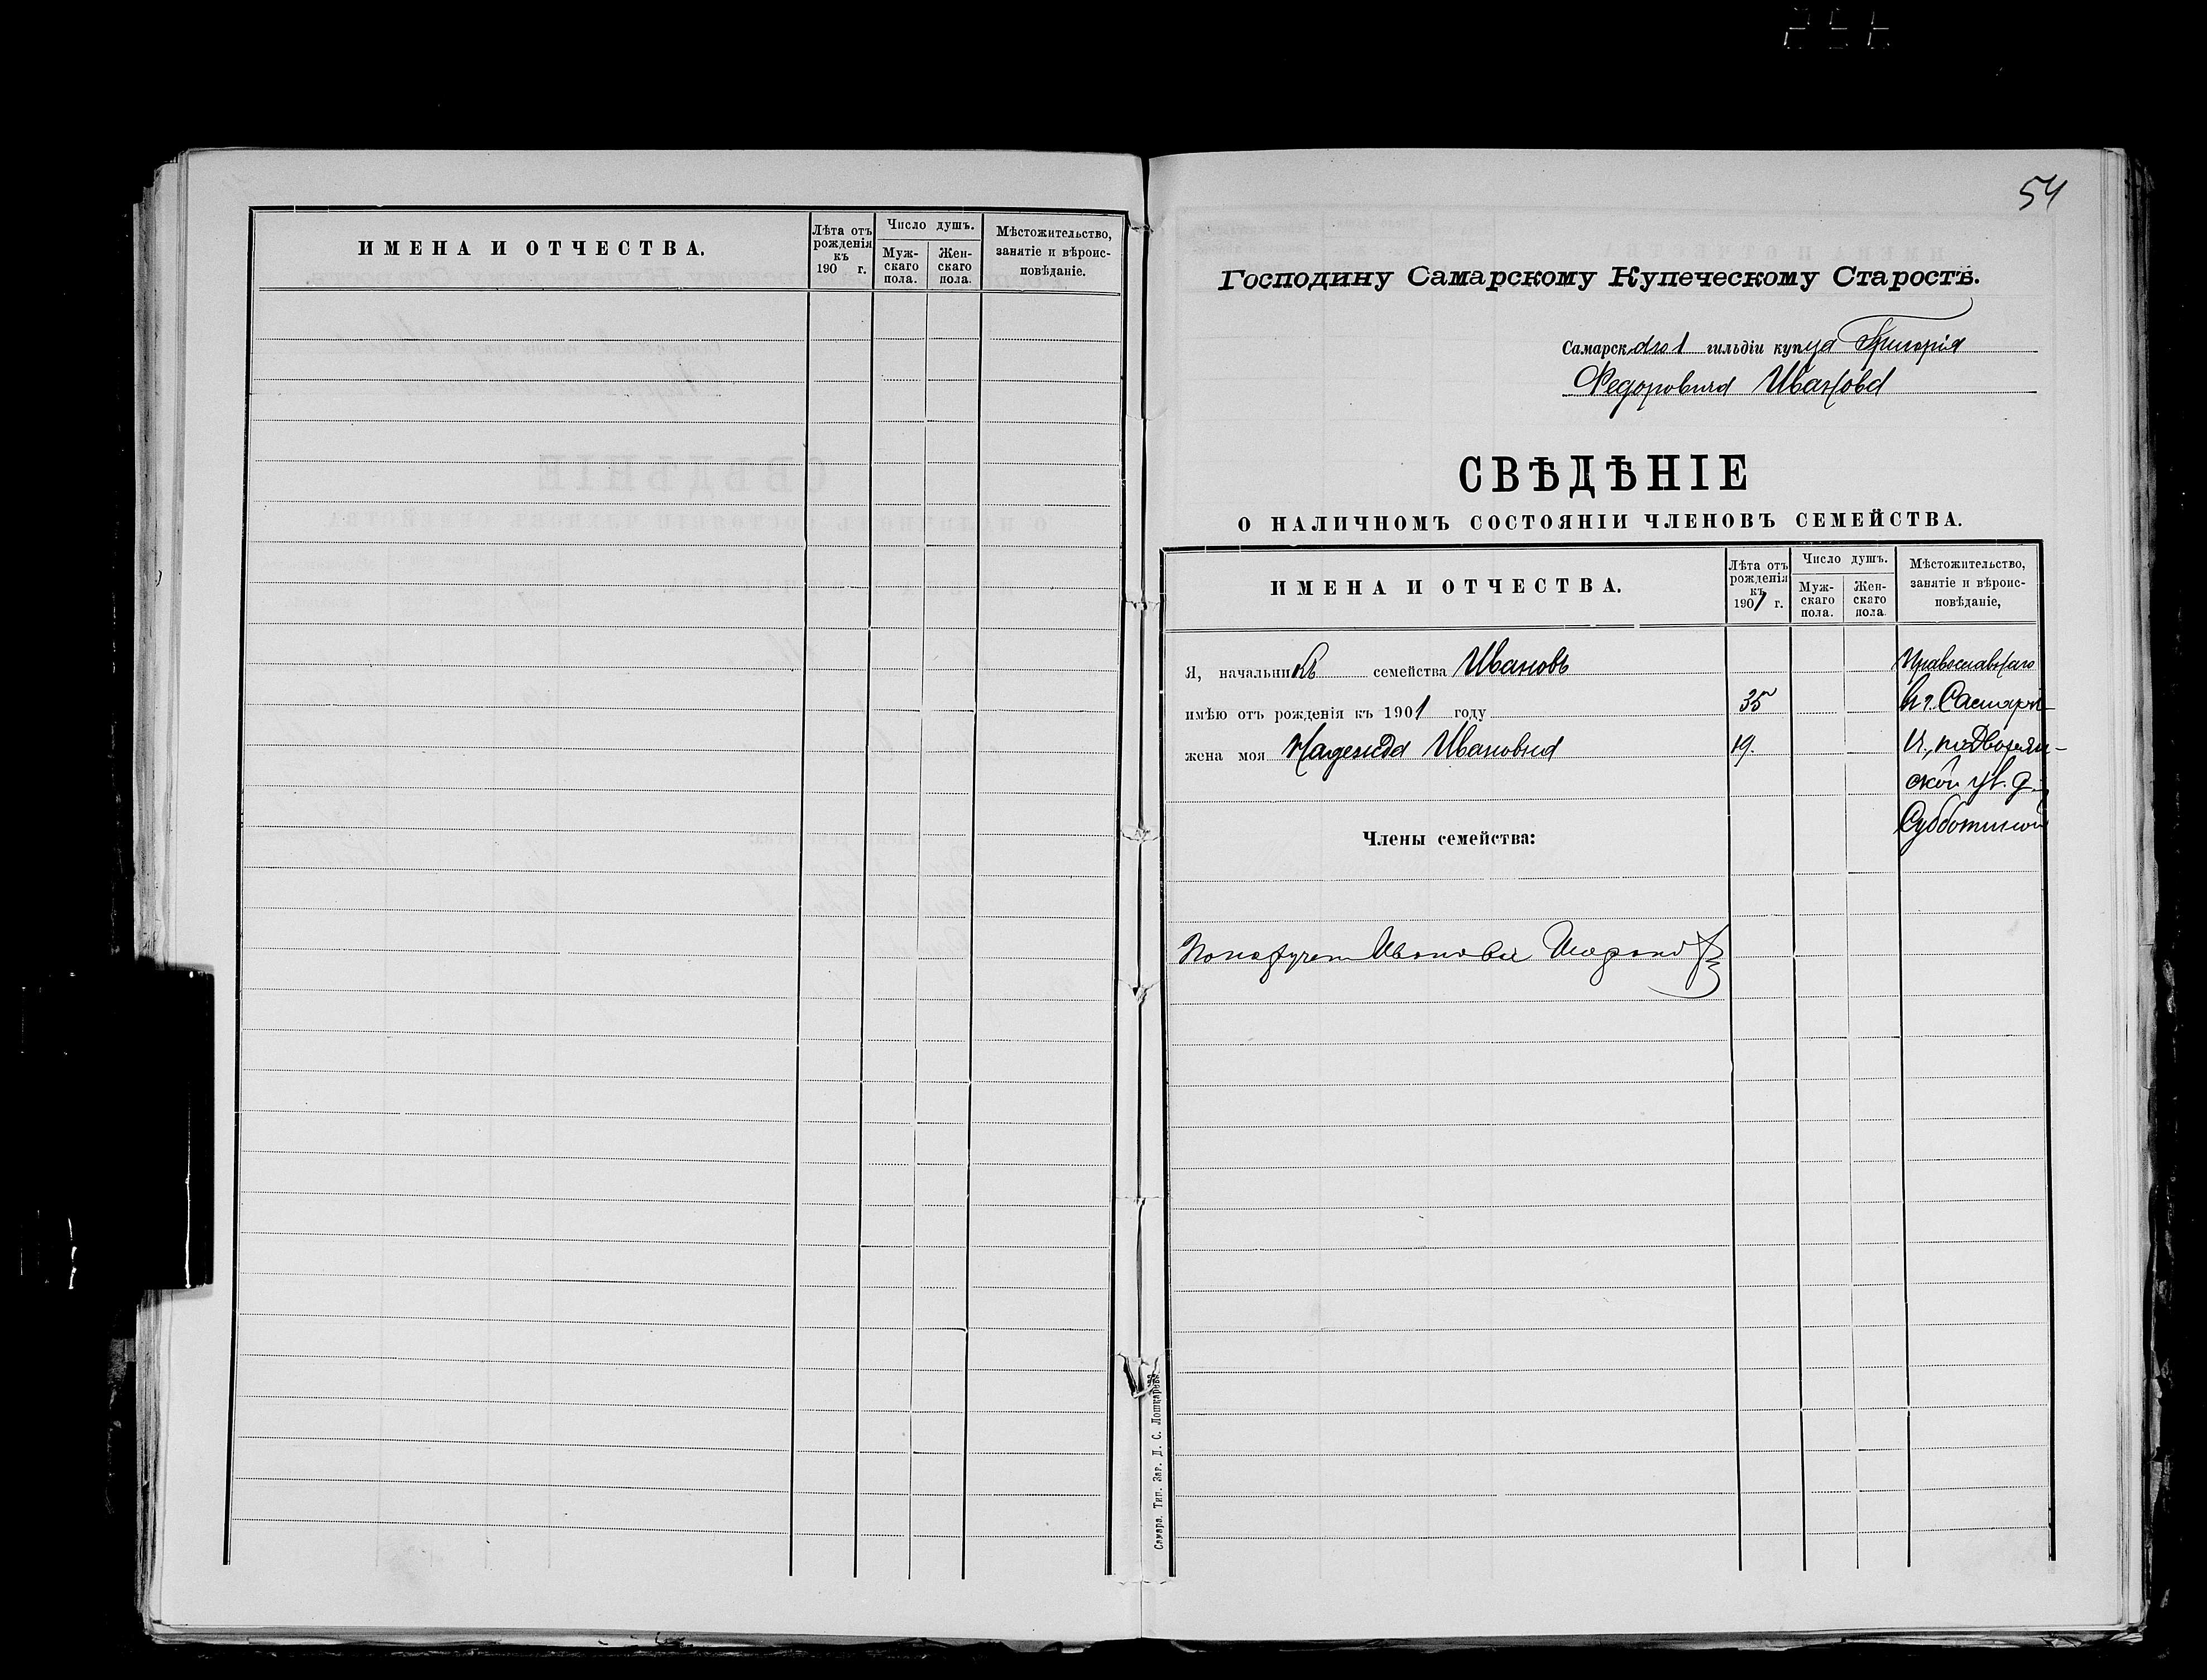 ИМЕНА И ОТЧЕСТВА.
Лѣта отъ рожденія къ 190 г.
Число душъ.
Муж-скаго пола.
Жен-скаго пола.
Мѣстожительство, занятіе и вѣроис-повѣданіе.
54
Господину Самарскому Купеческому Старостѣ.
Самарскаго 1 гильдіи купца Григорія
Федоровича Иванова
СВѢДѢНІЕ
О НАЛИЧНОМЪ СОСТОЯНІИ ЧЛЕНОВЪ СЕМЕЙСТВА.
ИМЕНА И ОТЧЕСТВА.
Лѣта отъ рожденія къ 1901 г.
Число душъ.
Муж-скаго пола.
Жен-скаго пола
Мѣстожительство, занятіе и вѣроис-повѣданіе,
Я, начальникъ семейства Ивановъ Православнаго
имѣю отъ рожденія къ 1901 году 35 в г. Самарѣ
жена моя Надежда Ивановна 19. по Дворян-
ской ул. д.
Субботиной
Члены семейства:
Самара. Тип. Заг. Д. С. Лошкарева.